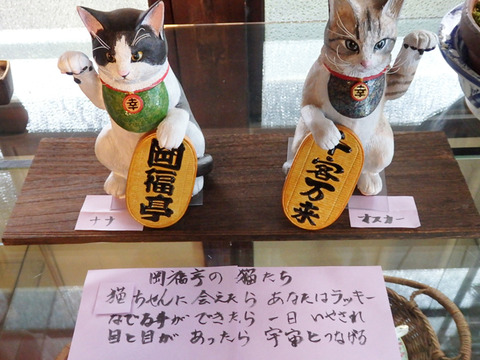 幸
幸
岡福亭
千客万来
ナナ
オスカー
岡福亭の猫たち
猫ちゃんに会えたら あなたはラッキー
なでる事ができたら 一日いやされ
目と目があったら 宇宙とつながる